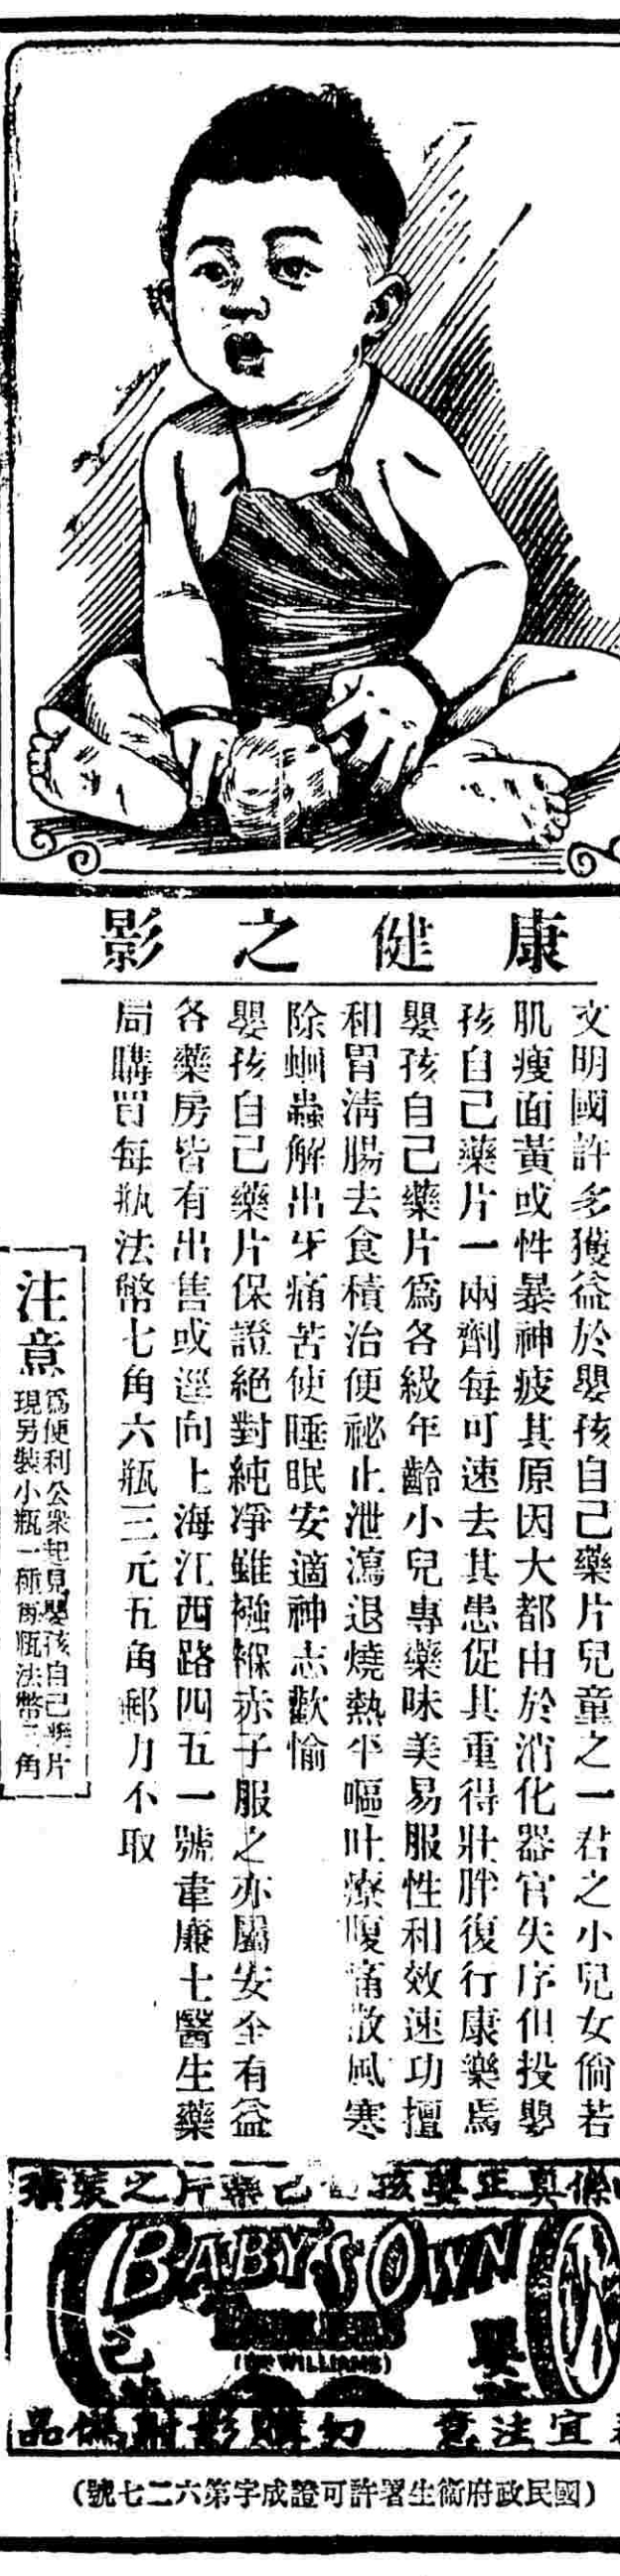 康健之影
文明國許多獲益於嬰孩自己藥片兒童之一君之小兒女倘若
肌瘦面黃或性暴神疲其原因大都由於消化器官失序但投嬰
孩自己藥片一兩劑每可速去其患促其重得壯胖復行康樂焉
嬰孩自己藥片爲各級年齡小兒專藥味美易服性和效速功擅
和胃清腸去食積治便祕止泄瀉退燒熱平嘔吐療腹痛散風寒
除蛔蟲解出牙痛苦使睡眠安適神志歡愉
嬰孩自己藥片保證絕對純淨雖襁褓赤子服之亦屬安全有益
各藥房皆有出售或逕向上海江西路四五一號韋廉士醫生藥
局購買每瓶法幣七角六瓶三元五角郵力不取
注意
爲便利公衆起見嬰孩自己藥片
現另裝小瓶一種每瓶法幣二角
係真正嬰孩自己藥片之裝璜
BABY'S OWN
(DR WILLIAMS)
嬰
己
宜注意 勿購影射僞品
(國民政府衞生署許可證成字第六二七號)